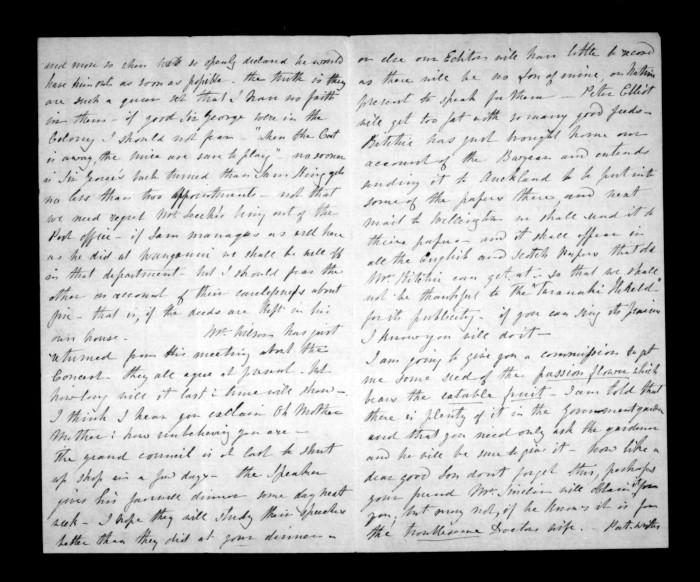 and more so when  so openly declared he would
have him out as soon as possible - the truth is they
are such a queer set that I have no faith
in them - if good Sir George were in the
Colony I should not fear - "when the Cat
is away, the mice are sure to play" - no sooner
is Sir George's back turned than  King gets
no less than two appointments - not that
we need regret Mr  being out of the
Post office - if  manages as well here
as he did at Wanganui we shall be well off
in that department but I should fear the
other on account of their carelessness about
fire - that is, if the deeds are kept in his
own house. Mr. Wilson has just
returned from his meeting about the
Concert - they all agree at present - but
how long will it last? time will show -
I think I hear you exclaim Oh Mother
Mother! how unbelieving you are -
The grand council is at last to shut
up shop in a few days - the Speaker
gives his farewell dinner some day next
week - I hope they will study their speeches
better than they did at your dinner -
or else our Editors will have little to record
as there will be no Son of mine, or 
present to speak for them - Peter Elliot
will get too fat with so many good feeds -
Ritchie has just brought home our
account of the Bazaar and intends
sending it to Auckland to be put into
some of the papers there, and next
mail to Wellington we shall send it to
their papers - and it shall appear in
all the English and Scotch Papers that old
Mr. Ritchie can get at - so that we shall
not be thankful to the "Taranaki Herald"
for its publicity - if you can sing its praises
I know you will do it -
I am going to give you a commission to get
me some seed of the passion flower which
bears the eatable fruit - I am told that
there is plenty of it in the Government garden
and that you need only ask the gardener
and he will be sure to give it - now like a
dear good Son don't forget this, perhaps
your friend Mr.  will obtain it for
you, but may not, if he knows it is for
the troublesome Doctors wife. -